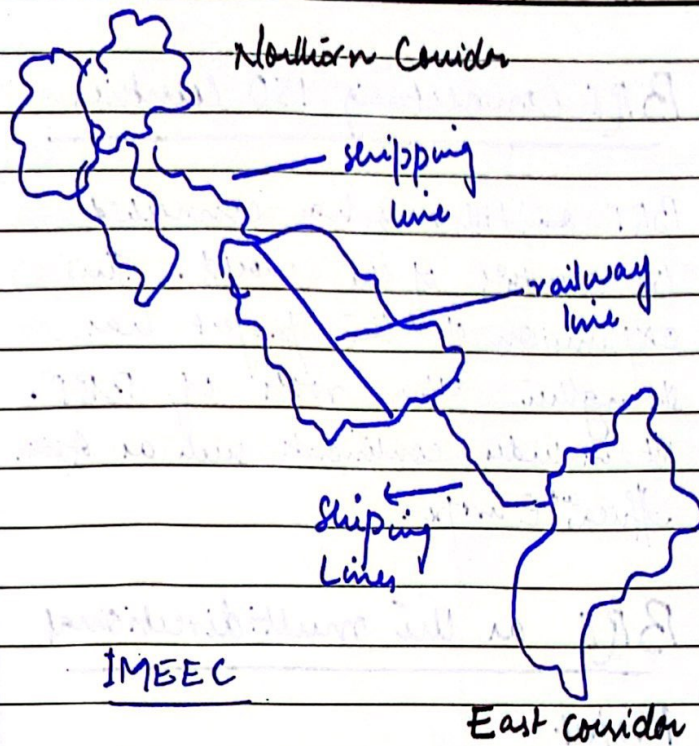 Northern Corridor
shipping
line
railway
line
Shiping
Lines
IMEEC
East corridor